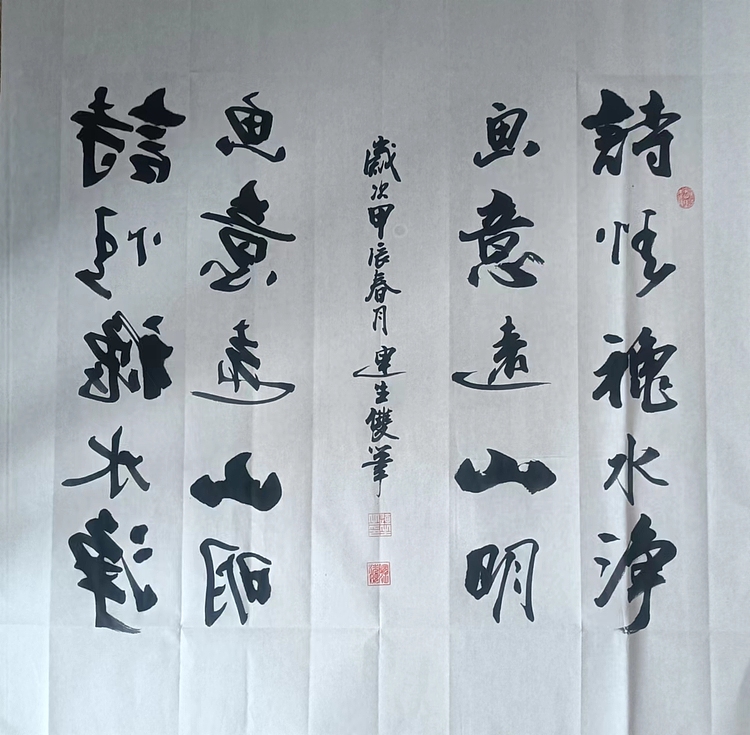 詩情穐水淨
画意遠山明
歲次甲辰春月連生雙筆
画意遠山明
詩情穐水淨